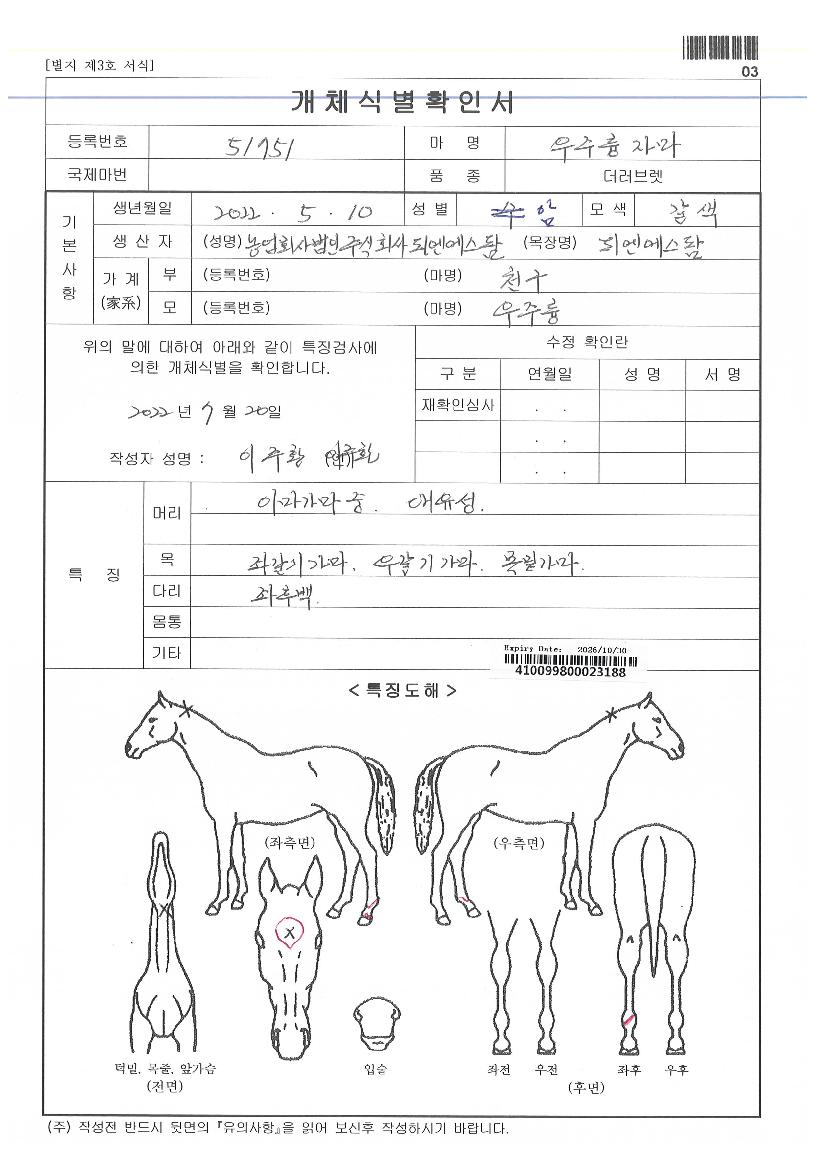 [별지 제3호 서식]
03
개체식별확인서
등록번호 51751 마 명 우주룸자마
국제마번 품 종 더러브렛
기본사항
생년월일 2022 . 5 . 10 성 별 수 암 모 색 갈색
생 산 자 (성명) 농업회사법인주식회사 디엔에스팜 (목장명) 디엔에스팜
가 계 (家系) 부 (등록번호) (마명) 천구
모 (등록번호) (마명) 우주룸
위의 말에 대하여 아래와 같이 특징검사에
의한 개체식별을 확인합니다.
2022 년 7 월 20 일
작성자 성명 : 이주황 (인)
수정 확인란
구 분 연월일 성 명 서 명
재확인심사 . .
. .
. .
특 징
머리 이마가마중. 애유성.
목 좌갈기가마. 우갈기가마. 목밑가마.
다리 좌후백.
몸통
기타
Expiry Date: 2026/10/30
410099800023188
< 특징도해 >
(좌측면) (우측면)
턱밑, 목줄, 앞가슴 입술 좌전 우전 좌후 우후
(전면) (후면)
(주) 작성전 반드시 뒷면의 『유의사항』을 읽어 보신후 작성하시기 바랍니다.